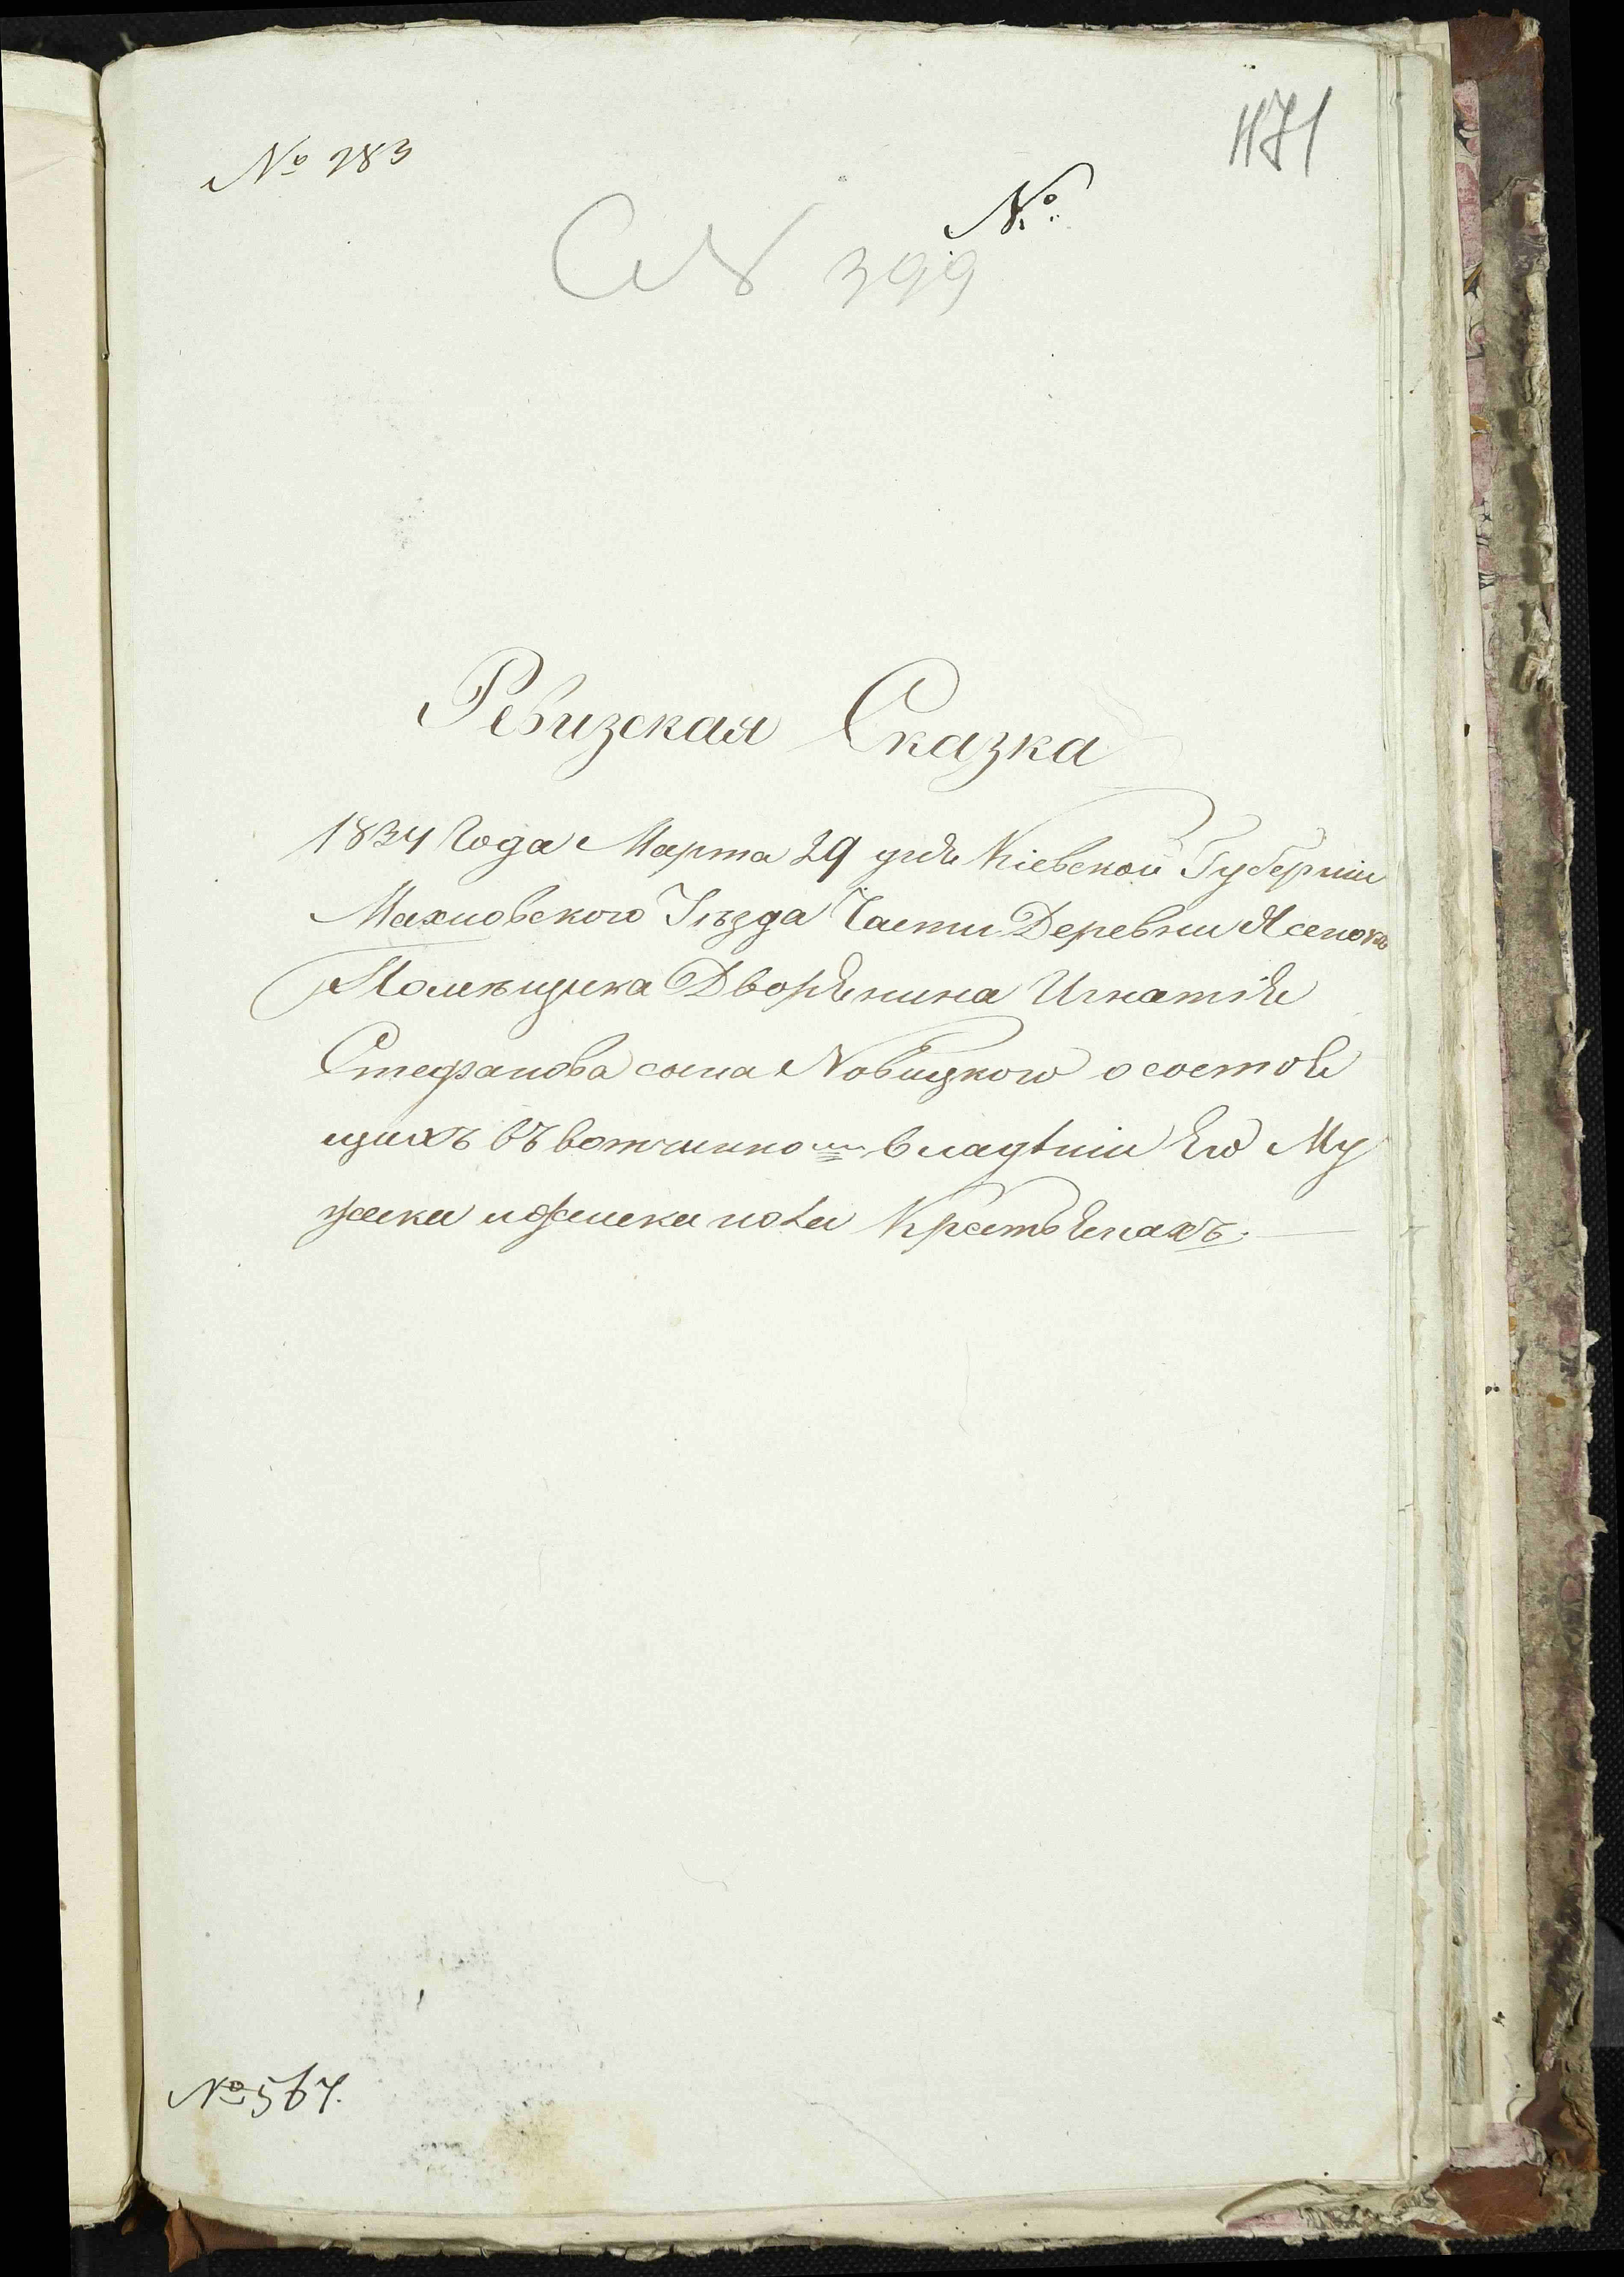 № 283
1171
№
СN 399
Ревизская Сказка
1834 Года Марта 29 дня Кіевской Губерніи
Махновского Уѣзда Части Деревни Ясенокъ
Помѣщика Дворянина Игнатія
Стефанова сына Новицкого о состоя
щихъ въ вотчинномъ владѣніи Его Му
жеска и женска пола Крестьянахъ.
№ 567.